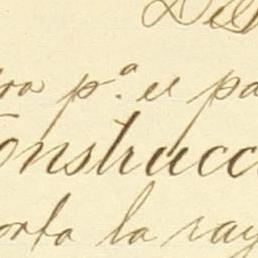 pª el pa
onstrucc
orta la ray